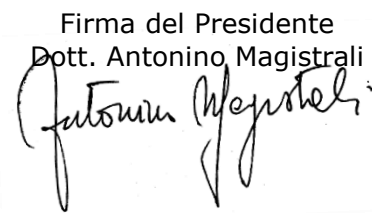 Firma del Presidente
Dott. Antonino Magistrali
Antonino Magistrali